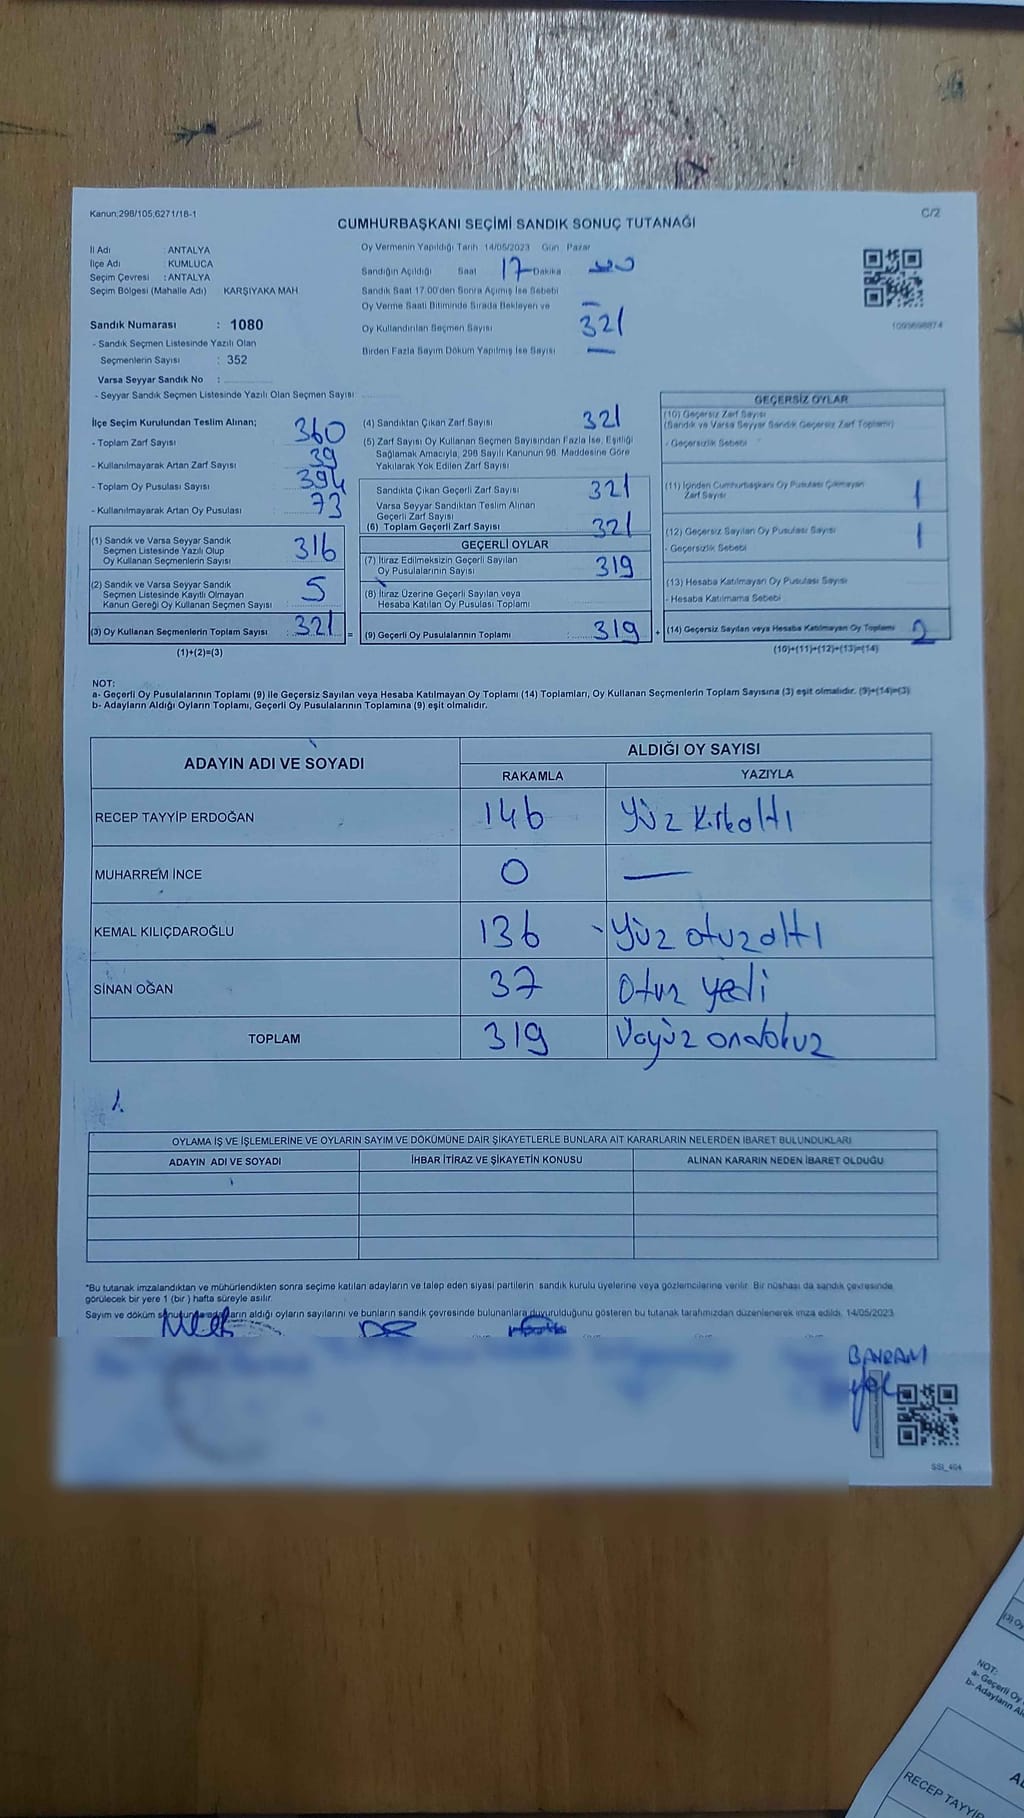 Kanun:298/105;6271/18-1
C/2
CUMHURBAŞKANI SEÇİMİ SANDIK SONUÇ TUTANAĞI
İl Adı : ANTALYA
İlçe Adı : KUMLUCA
Seçim Çevresi : ANTALYA
Seçim Bölgesi (Mahalle Adı) KARŞIYAKA MAH
Sandık Numarası : 1080
- Sandık Seçmen Listesinde Yazılı Olan
Seçmenlerin Sayısı : 352
Varsa Seyyar Sandık No :
- Seyyar Sandık Seçmen Listesinde Yazılı Olan Seçmen Sayısı
Oy Vermenin Yapıldığı Tarih 14/05/2023 Gün Pazar
Sandığın Açıldığı Saat 17 Dakika
Sandık Saat 17.00'den Sonra Açılmış İse Sebebi
Oy Verme Saati Bitiminde Sırada Bekleyen ve —
Oy Kullandırılan Seçmen Sayısı 321
Birden Fazla Sayım Döküm Yapılmış İse Sayısı —
1093698874
İlçe Seçim Kurulundan Teslim Alınan;
- Toplam Zarf Sayısı 360
- Kullanılmayarak Artan Zarf Sayısı 39
- Toplam Oy Pusulası Sayısı 394
- Kullanılmayarak Artan Oy Pusulası 73
(1) Sandık ve Varsa Seyyar Sandık
Seçmen Listesinde Yazılı Olup
Oy Kullanan Seçmenlerin Sayısı 316
(2) Sandık ve Varsa Seyyar Sandık
Seçmen Listesinde Kayıtlı Olmayan
Kanun Gereği Oy Kullanan Seçmen Sayısı 5
(3) Oy Kullanan Seçmenlerin Toplam Sayısı : 321 =
(1)+(2)=(3)
(4) Sandıktan Çıkan Zarf Sayısı 321
(5) Zarf Sayısı Oy Kullanan Seçmen Sayısından Fazla İse, Eşitliği
Sağlamak Amacıyla, 298 Sayılı Kanunun 98. Maddesine Göre
Yakılarak Yok Edilen Zarf Sayısı
Sandıkta Çıkan Geçerli Zarf Sayısı 321
Varsa Seyyar Sandıktan Teslim Alınan
Geçerli Zarf Sayısı
(6) Toplam Geçerli Zarf Sayısı 321
GEÇERLİ OYLAR
(7) İtiraz Edilmeksizin Geçerli Sayılan
Oy Pusulalarının Sayısı 319
(8) İtiraz Üzerine Geçerli Sayılan veya
Hesaba Katılan Oy Pusulası Toplamı
(9) Geçerli Oy Pusulalarının Toplamı : 319 +
GEÇERSİZ OYLAR
(10) Geçersiz Zarf Sayısı
(Sandık ve Varsa Seyyar Sandık Geçersiz Zarf Toplamı)
- Geçersizlik Sebebi
(11) İçinden Cumhurbaşkanı Oy Pusulası Çıkmayan
Zarf Sayısı 1
(12) Geçersiz Sayılan Oy Pusulası Sayısı 1
- Geçersizlik Sebebi
(13) Hesaba Katılmayan Oy Pusulası Sayısı
- Hesaba Katılmama Sebebi
(14) Geçersiz Sayılan veya Hesaba Katılmayan Oy Toplamı 2
(10)+(11)+(12)+(13)=(14)
NOT:
a- Geçerli Oy Pusulalarının Toplamı (9) ile Geçersiz Sayılan veya Hesaba Katılmayan Oy Toplamı (14) Toplamları, Oy Kullanan Seçmenlerin Toplam Sayısına (3) eşit olmalıdır. (9)+(14)=(3)
b- Adayların Aldığı Oyların Toplamı, Geçerli Oy Pusulalarının Toplamına (9) eşit olmalıdır.
ADAYIN ADI VE SOYADI
ALDIĞI OY SAYISI
RAKAMLA YAZIYLA
RECEP TAYYİP ERDOĞAN 146 Yüz kırkaltı
MUHARREM İNCE 0 —
KEMAL KILIÇDAROĞLU 136 Yüz otuzaltı
SİNAN OĞAN 37 Otuz yedi
TOPLAM 319 Üçyüz ondokuz
OYLAMA İŞ VE İŞLEMLERİNE VE OYLARIN SAYIM VE DÖKÜMÜNE DAİR ŞİKAYETLERLE BUNLARA AİT KARARLARIN NELERDEN İBARET BULUNDUKLARI
ADAYIN ADI VE SOYADI İHBAR İTİRAZ VE ŞİKAYETİN KONUSU ALINAN KARARIN NEDEN İBARET OLDUĞU
*Bu tutanak imzalandıktan ve mühürlendikten sonra seçime katılan adayların ve talep eden siyasi partilerin sandık kurulu üyelerine veya gözlemcilerine verilir. Bir nüshası da sandık çevresinde
görülecek bir yere 1 (bir) hafta süreyle asılır.
Sayım ve döküm aldığı oyların sayılarını ve bunların sandık çevresinde bulunanlara duyurulduğunu gösteren bu tutanak tarafımızdan düzenlenerek imza edildi. 14/05/2023
BAYRAM
SSI_404
NOT:
a- Geçerli Oy
b- Adayların Al
RECEP TAYYİP